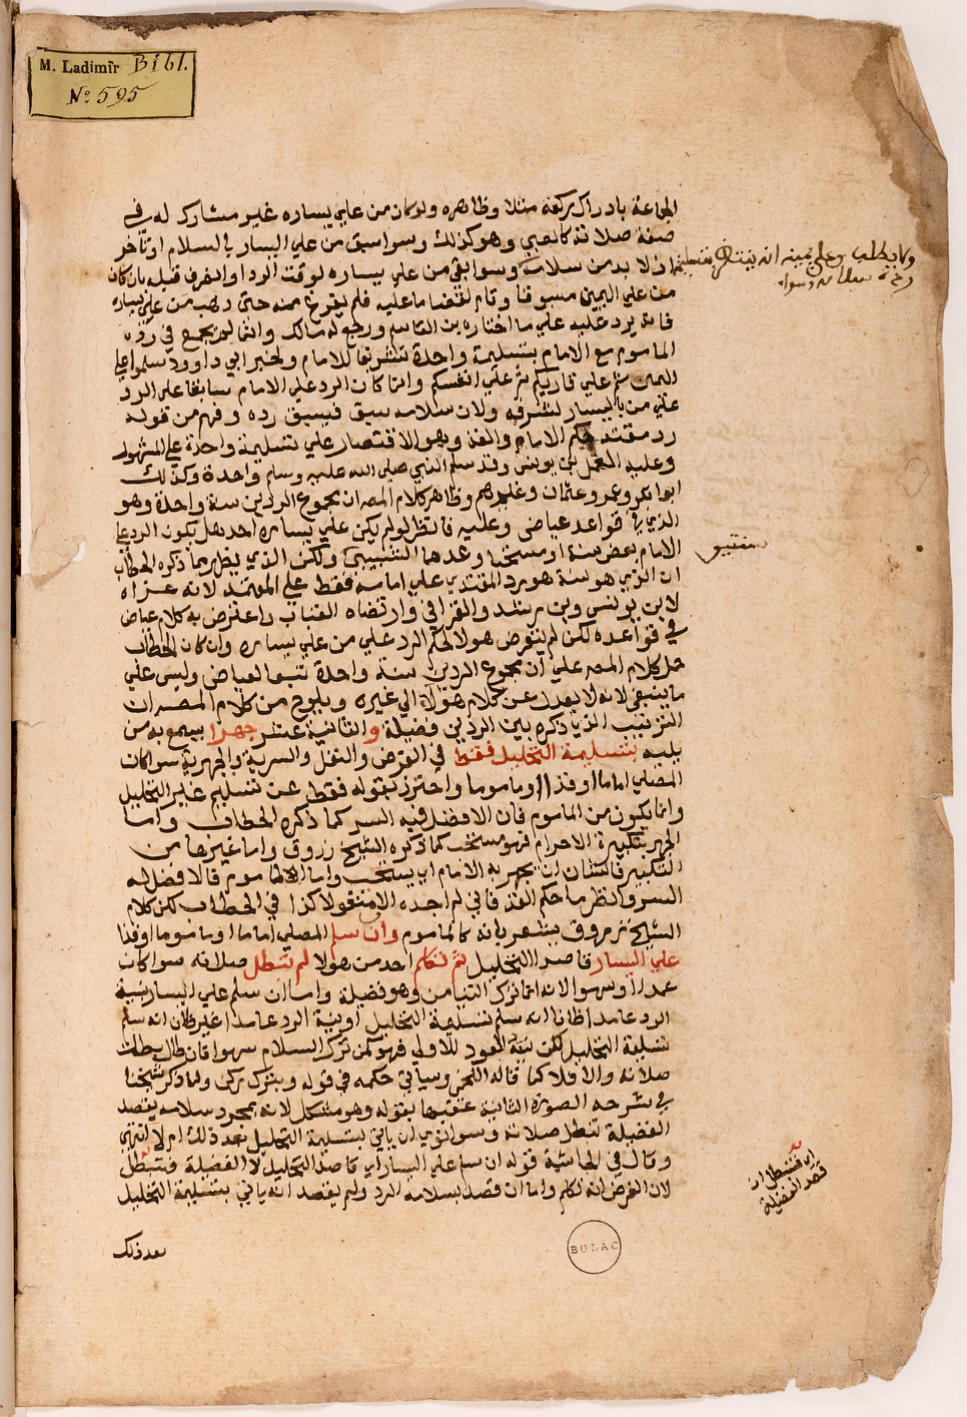 M. Ladimir Bibl.
No 595
الجماعة بادراك ركعة مثلا وظاهره ولو كان من علي يساره غير مشارك له في
صفة صلاته كالصبي وهو كذلك وسوا سبق من علي اليسار بالسلام او تاخر
اذ لا بد من سلامه وسوا بقي من علي يساره لوقت الرد او انصرف قبله بان كان
من علي اليمين مسبوقا وقام لقضا ما عليه فلم يفرغ منه حتى ذهب من علي يساره
فانه يرد عليه علي ما اختاره بن القاسم ورجع له مالك وانما لم يجمع في رده
الماموم مع الامام بتسليمة واحدة تشريفا للامام ولخبر ابي داوود سلموا علي
اليمين ثم علي قاريكم ثم علي انفسكم وانما كان الرد علي الامام سابقا علي الرد
علي من باليسار لشرفه ولان سلامه سبق فيسبق رده وفهم من قوله
رد مقتد حكم الامام والفذ وهو الاقتصار علي تسليمة واحدة علي المشهور
وعليه العمل بن يونس وقد سلم النبي صلي الله عليه وسلم واحدة وكذلك
ابو بكر وعمر وعثمان وغيرهم وظاهر كلام المصـ ان مجموع الردين سنة واحدة وهو
الذي في قواعد عياض وعليه فانظر لو لم يكن علي يساره احد هل يكون الرد علي
الامام بعض سنة او مستحبا وعدها الشبيبي ولكن الذي يظهر مما ذكره الحطاب
ان الذي هو سنة هو رد المقتدي علي امامه فقط علي المعتمد لانه عزاه
لابن يونس وبن رشد والقرافي وارتضاه القباب واعترض به كلام عياض
في قواعده لكن لم يتعرض هولا لحكم الرد علي من علي يساره وان كان الحطاب
حمل كلام المصـ علي ان مجموع الردين سنة واحدة تبعا لعياض وليس علي
ما ينبغي لانه لا يعدل عن كلام هولاء الي غيره ويلوح من كلام المصـ ان
الترتيب الذي ذكره بين الردين فضيلة و الثانية عشر جهرا يسمع به من
يليه بتسليمة التحليل فقط في الفرض والنفل والسرية والجهرية سوا كان
المصلي اماما او فذا او ماموما واحترز بقوله فقط عن تسليم غير التحليل
وانما يكون من الماموم فان الافضل فيه السر كما ذكره الحطاب واما
الجهر بتكبيرة الاحرام فهو مستحب كما ذكره الشيخ زروق واما غيرها من
التكبير فالشان ان يجهر به الامام اي يستحب واما الماموم فالافضل له
السر وانظر ما حكم الفذ فاني لم اجده الا منقولا كذا في الحطاب لكن كلام
الشيخ زروق يشعر بانه كالماموم وان سلم المصلي اماما او ماموما او فذا
علي اليسار قاصدا التحليل ثم تكلم احد من هولا لم تبطل صلاته سوا كان
عمدا او سهوا لانه انما ترك التيامن وهو فضيلة واما ان سلم علي اليسار بنية
الرد عامدا ظانا انه سلم تسليمة التحليل او بنية الرد عامدا غير ظان انه سلم
تسليمة التحليل لكن نيته العود للاولي فهو كمن ترك السلام سهوا فان طال بطلت
صلاته والا فلا كما قاله اللخمي وسياتي حكمه في قوله وبترك ركن ولما ذكر شيخنا
في شرحه الصورة الثانية عقبها بقوله وهو مشكل لانه بمجرد سلامه بقصد
الفضيلة تبطل صلاته وسوا نوي ان ياتي بتسليمة التحليل بعد ذلك ام لا انتهي
وقال في الحاشية قوله ان سلم علي اليسار اي قاصدا التحليل لا الفضيلة فتبطل
لان الفرض انه تكلم واما ان قصد بسلامه الرد ولم يقصد انه ياتي بتسليمة التحليل
بعد ذلك
اي فتبطل ان
قصد الفضيلة
BULAC